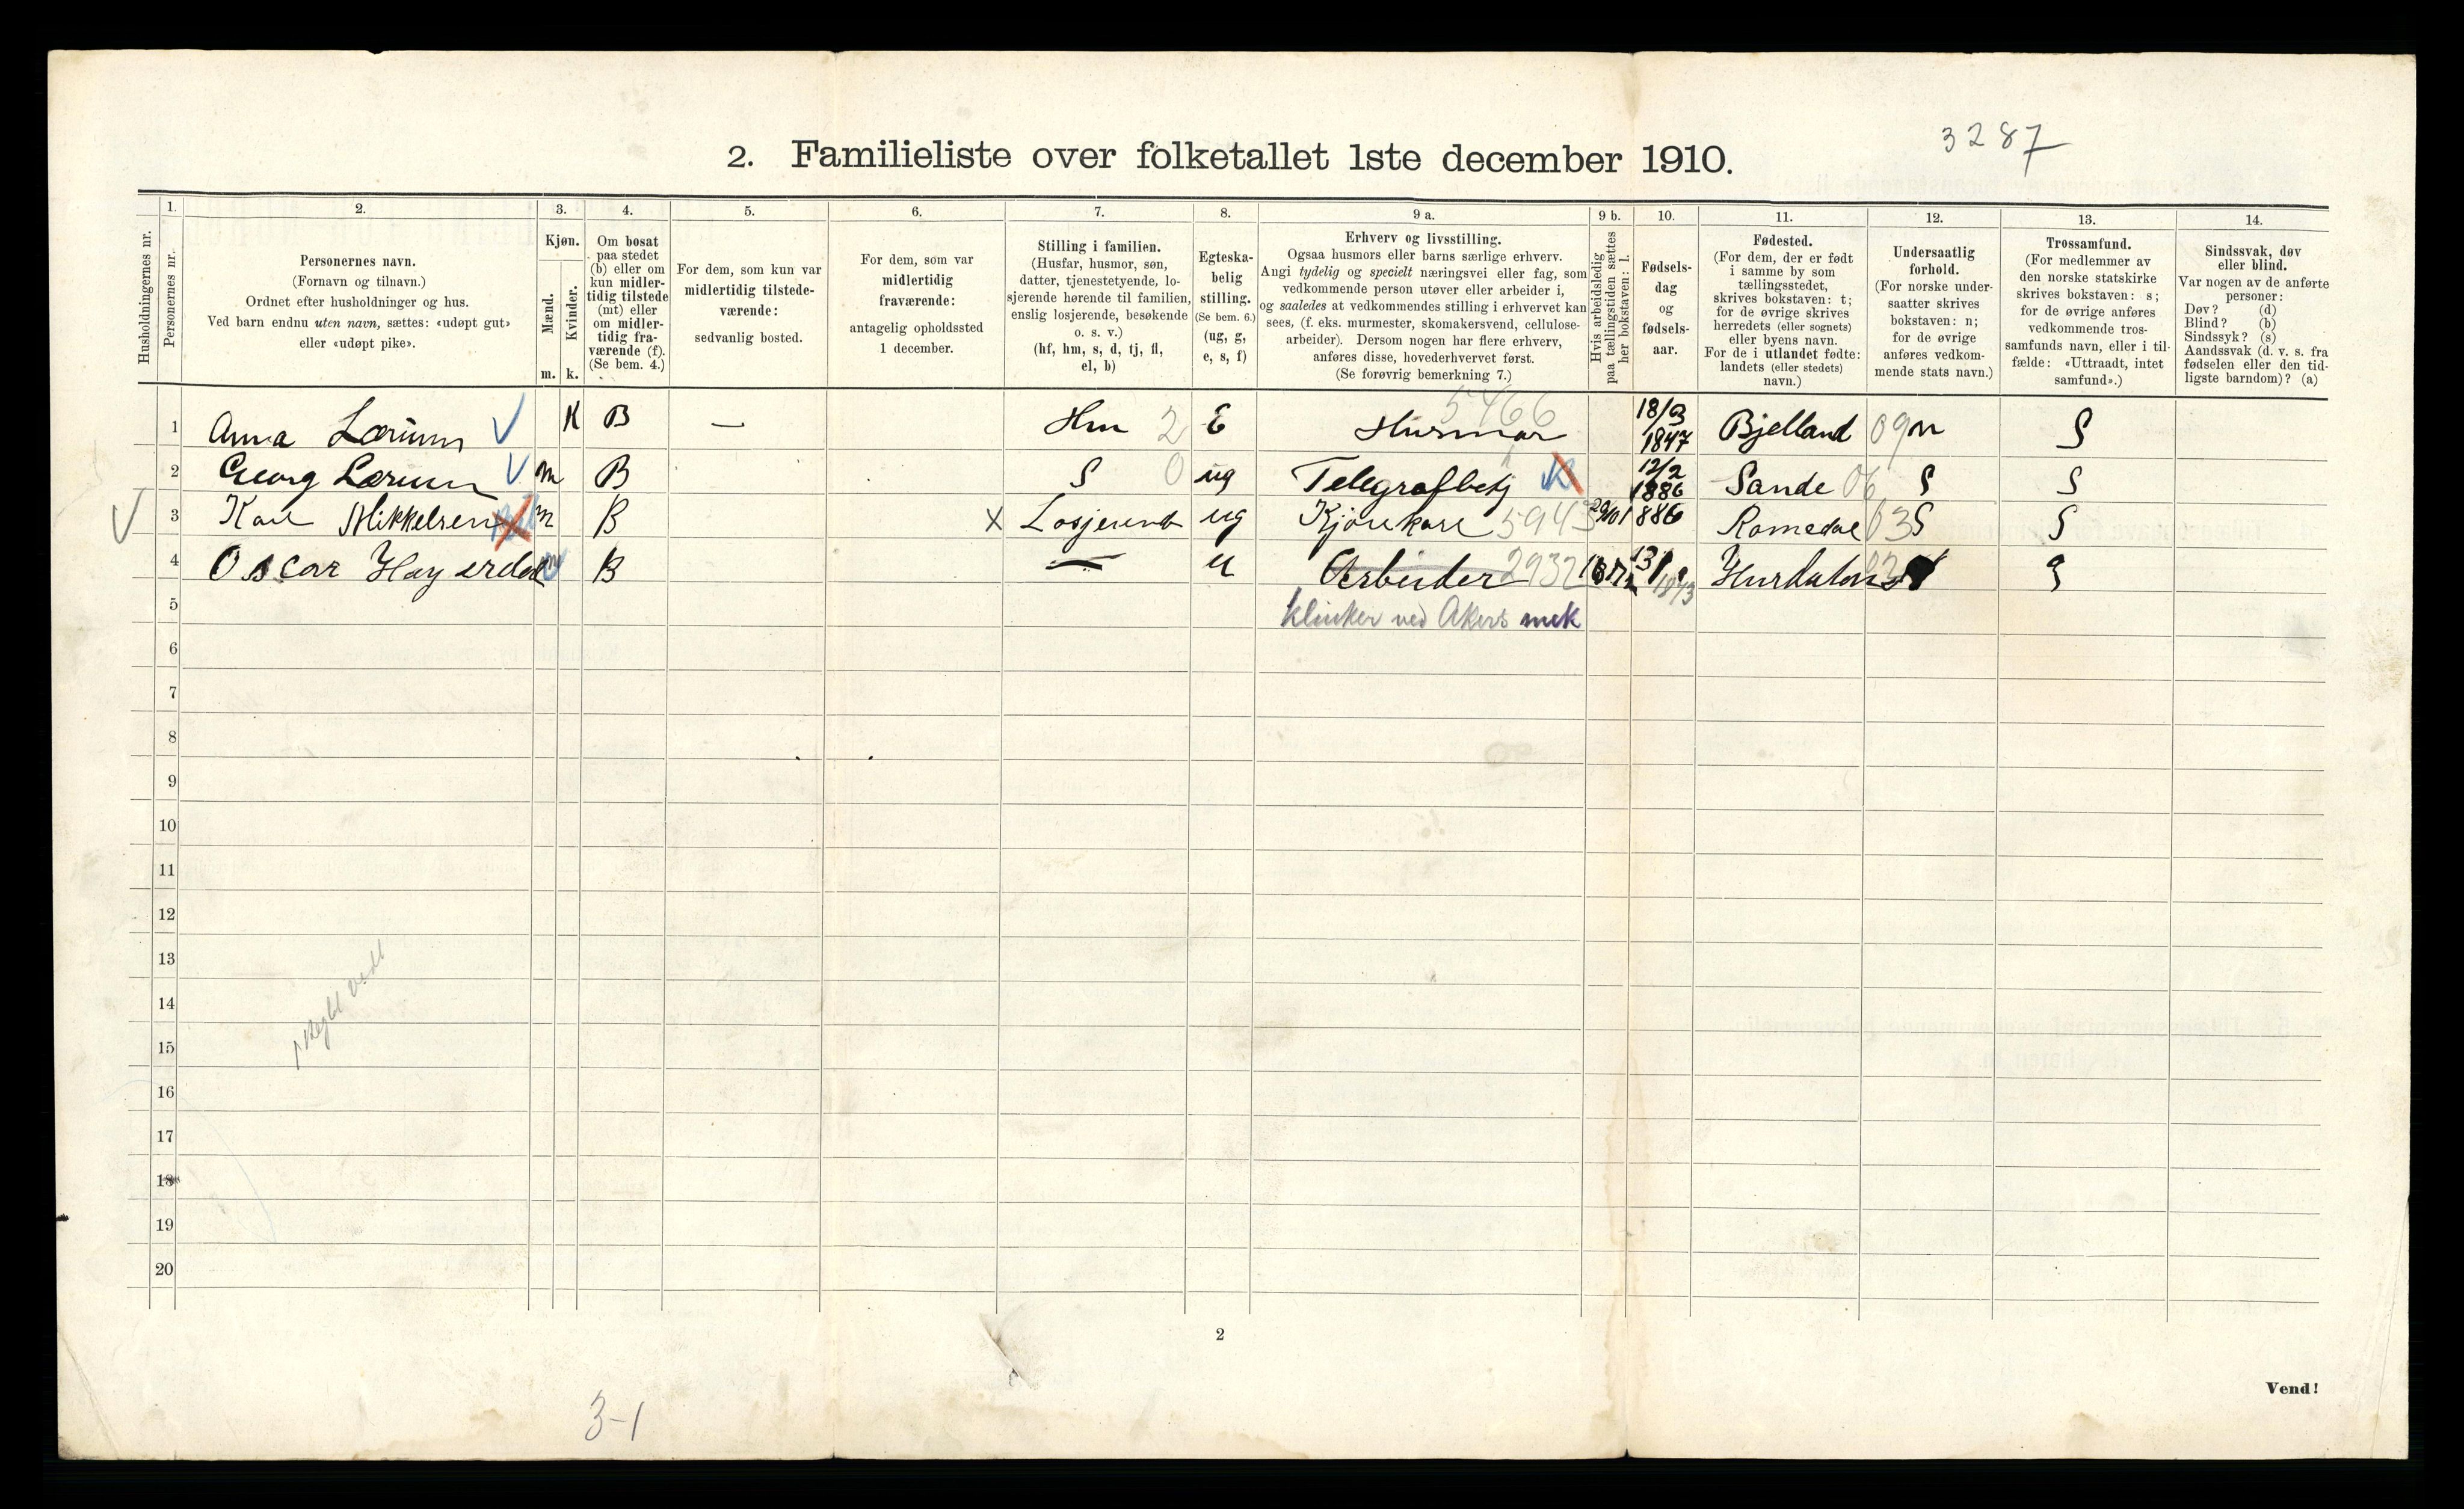 3287
2. Familieliste over folketallet 1ste december 1910.
Husholdningernes nr.
1. Personernes nr.
2. Personernes navn.
(Fornavn og tilnavn.)
Ordnet efter husholdninger og hus.
Ved barn endnu uten navn, sættes: «udøpt gut»
eller «udøpt pike».
3. Kjøn.
Mænd. Kvinder.
m. k.
4. Om bosat
paa stedet
(b) eller om
kun midler-
tidig tilstede
(mt) eller
om midler-
tidig fra-
værende (f).
(Se bem. 4.)
5. For dem, som kun var
midlertidig tilstede-
værende:
sedvanlig bosted.
6. For dem, som var
midlertidig
fraværende:
antagelig opholdssted
1 december.
7. Stilling i familien.
(Husfar, husmor, søn,
datter, tjenestetyende, lo-
sjerende hørende til familien,
enslig losjerende, besøkende
o. s. v.)
(hf, hm, s, d, tj, fl,
el, b)
8. Egteska-
belig
stilling.
(Se bem. 6.)
(ug, g,
e, s, f)
9 a. Erhverv og livsstilling.
Ogsaa husmors eller barns særlige erhverv.
Angi tydelig og specielt næringsvei eller fag, som
vedkommende person utøver eller arbeider i,
og saaledes at vedkommendes stilling i erhvervet kan
sees, (f. eks. murmester, skomakersvend, cellulose-
arbeider). Dersom nogen har flere erhverv,
anføres disse, hovederhvervet først.
(Se forøvrig bemerkning 7.)
9 b. Hvis arbeidsledig
paa tællingstiden sættes
her bokstaven: l.
10. Fødsels-
dag
og
fødsels-
aar.
11. Fødested.
(For dem, der er født
i samme by som
tællingsstedet,
skrives bokstaven: t;
for de øvrige skrives
herredets (eller sognets)
eller byens navn.
For de i utlandet fødte:
landets (eller stedets)
navn.)
12. Undersaatlig
forhold.
(For norske under-
saatter skrives
bokstaven: n;
for de øvrige
anføres vedkom-
mende stats navn.)
13. Trossamfund.
(For medlemmer av
den norske statskirke
skrives bokstaven: s;
for de øvrige anføres
vedkommende tros-
samfunds navn, eller i til-
fælde: «Uttraadt, intet
samfund».)
14. Sindssvak, døv
eller blind.
Var nogen av de anførte
personer:
Døv? (d)
Blind? (b)
Sindssyk? (s)
Aandssvak (d. v. s. fra
fødselen eller den tid-
ligste barndom)? (a)
5466
1 Anna Lærum V K B — Hm 2 E Husmor 18/3 1847 Bjelland 09 n S
2 Georg Lærum V m B S 0 ug Telegrafbetj 12/2 1886 Sande 06 S S
V 3 Karl Mikkelsen m B X Losjerend ug Kjørekarl 5943 29/10 1886 Romedal 03 S S
4 Oscar Høyerdal m B — u Arbeider 2932 13/ 1873 Hurdalen S
5 klinker ved Akers mek
6
7
8
9
10
11
12
13
14
15
16
17
18
19
20
2
Vend!
3-1